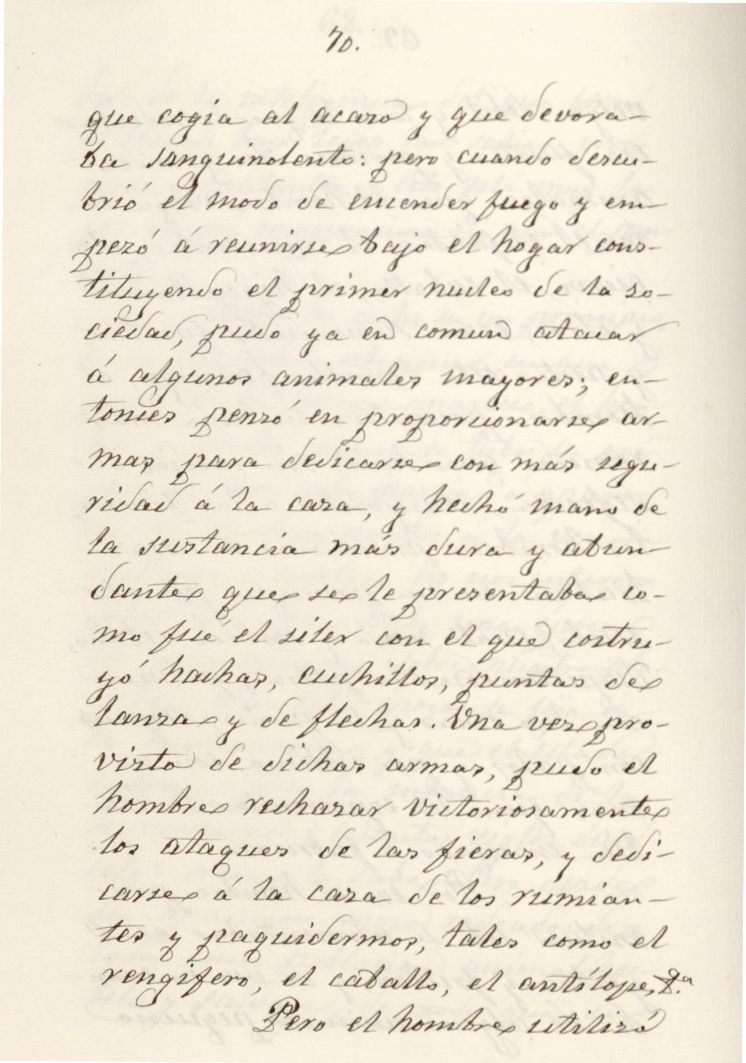 70.
que cogia al acazo y que devora-
ba sanguinolento: pero cuando descu-
brió el modo de encender fuego y em-
pezó á reunirse bajo el hogar cons-
tituyendo el primer nucleo de la so-
ciedad, pudo ya en comun atacar
á algunos animales mayores; en-
tonces pensó en proporcionarse ar-
mas para dedicarse con más segu-
ridad á la caza, y hechó mano de
la sustancia más dura y abun-
dante que se le presentaba co-
mo fué el silex con el que costru-
yó hachas, cuchillos, puntas de
lanza y de flechas. Una vez pro-
visto de dichas armas, pudo el
hombre rechazar victoriosamente
los ataques de las fieras, y dedi-
carse á la caza de los rumian-
tes y paquidermos, tales como el
rengifero, el caballo, el antílope, &.a
Pero el hombre utilizó